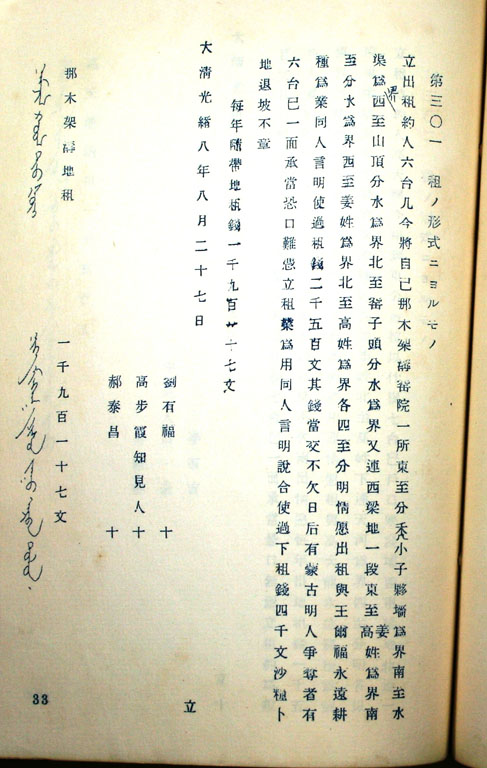 第三〇一　租ノ形式ニヨルモノ
立出租約人六台几今將自己那木架溝窑院一所東至分水小子夥墻爲界南至水
渠爲界西至山頂分水爲界北至窑子頭分水爲界又連西梁地一段東至高姜姓爲界南
至分水爲界西至姜姓爲界北至高姓爲界各四至分明情愿出租與王爾福永遠耕
種爲業同人言明使過租錢二千五百文其錢當交不欠日后有蒙古明人爭奪者有
六台巳一面承當恐口難憑立租業爲用同人言明說合使過下租錢四千文沙壓卜
地退坡不章
每年隨帶地租錢一千九百廿十七文
大淸光緖八年八月二十七日
劉石福　十
高步霞知見人十
郝泰昌　十
立
那木架溝地租　一千九百一十七文
33